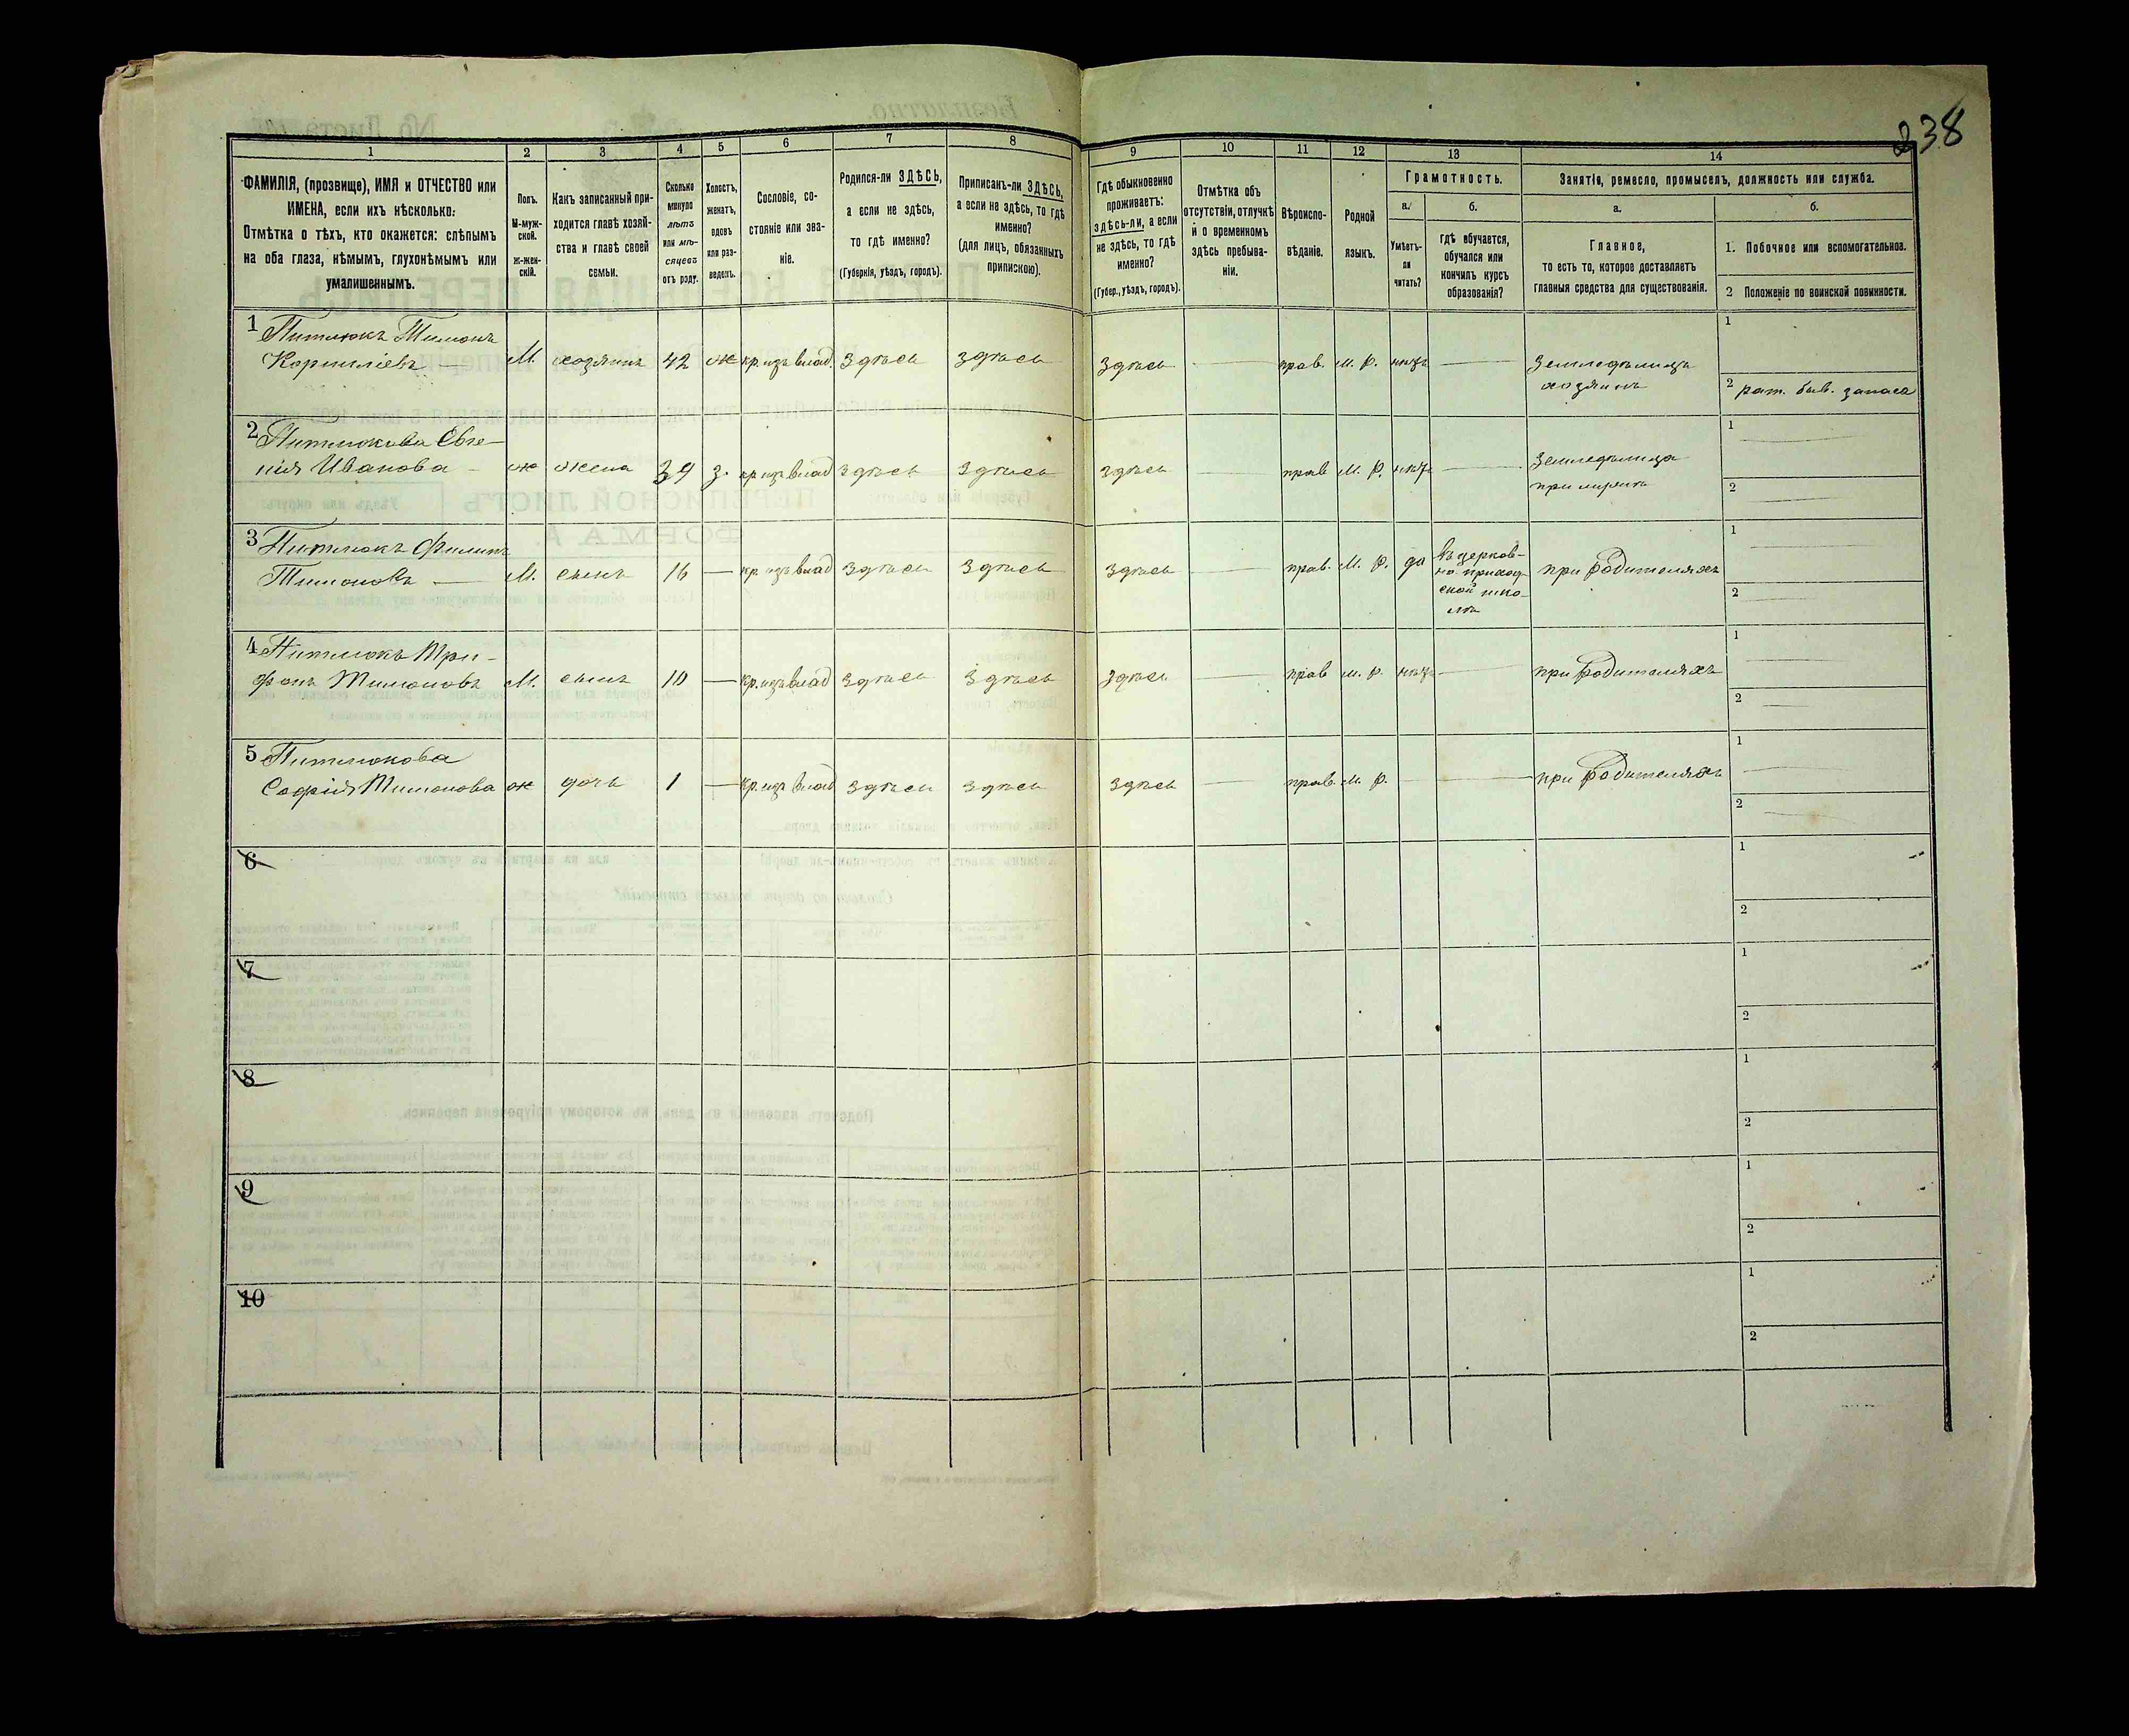 238
1
2
3
4
5
6
7
8
9
10
11
12
13
14
ФАМИЛІЯ, (прозвище), ИМЯ и ОТЧЕСТВО или
ИМЕНА, если ихъ нѣсколько.
Отмѣтка о тѣхъ, кто окажется: слѣпымъ
на оба глаза, нѣмымъ, глухонѣмымъ или
умалишеннымъ.
Полъ.
М-муж-
ской.
Ж-жен-
скій.
Какъ записанный при-
ходится главѣ хозяй-
ства и главѣ своей
семьи.
Сколько
минуло
лѣтъ
или мѣ-
сяцевъ
отъ роду.
Холостъ,
женатъ,
вдовъ
или раз-
веденъ.
Сословіе, со-
стояніе или зва-
ніе.
Родился-ли ЗДѢСЬ,
а если не здѣсь,
то гдѣ именно?
(Губернія, уѣздъ, городъ).
Приписанъ-ли ЗДѢСЬ,
а если не здѣсь, то гдѣ
именно?
(для лицъ, обязанныхъ
припискою).
Гдѣ обыкновенно
проживаетъ:
здѣсь-ли, а если
не здѣсь, то гдѣ
именно?
(Губер., уѣздъ, городъ).
Отмѣтка объ
отсутствіи, отлучкѣ
и о временномъ
здѣсь пребыва-
ніи.
Вѣроиспо-
вѣданіе.
Родной
языкъ.
Грамотность.
а.
Умѣетъ-
ли
читать?
б.
гдѣ обучается,
обучался или
кончилъ курсъ
образованія?
Занятія, ремесло, промыселъ, должность или служба.
а.
Главное,
то есть то, которое доставляетъ
главныя средства для существованія.
б.
1. Побочное или вспомогательное.
2 Положеніе по воинской повинности.
1 Питлюкъ Тимонъ
Корниліевъ — М. хозяинъ 42 ж кр. изъ влад. здѣсь здѣсь здѣсь — прав. м. р. нѣтъ — Земледѣлецъ
хозяинъ
1
2 рат. быв. запаса
2 Питлюкова Евге-
нія Иванова - ж жена 39 з. кр изъ влад здѣсь здѣсь здѣсь — прав м. р. нѣтъ — Земледѣлица
1
2
3 Питлюкъ Филипъ
Тимоновъ — М. сынъ 16 — кр изъ влад здѣсь здѣсь здѣсь — прав. м. р. да
въ церков-
но приход-
ской шко-
лѣ
при родителяхъ
1
2
4 Питлюкъ Три-
фонъ Тимоновъ М. сынъ 10 — кр. изъ влад здѣсь здѣсь здѣсь — прав м. р. нѣтъ — при родителяхъ
1
2
5 Питлюкова
Софія Тимонова ж дочь 1 — кр. изъ влад здѣсь здѣсь здѣсь — прав. м. р. — — при родителяхъ
1
2
6
1
2
7
1
2
8
1
2
9
1
2
10
1
2